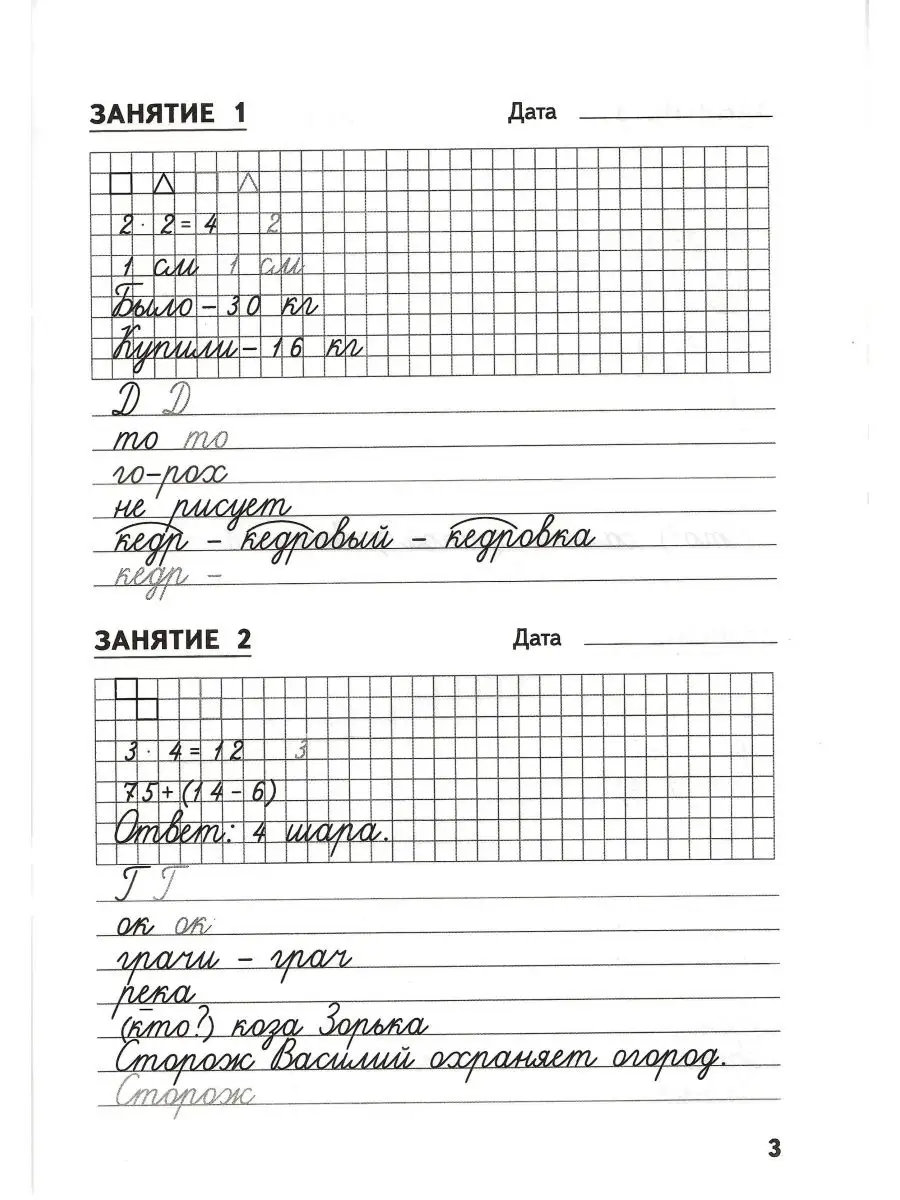 ЗАНЯТИЕ 1 Дата
2 · 2 = 4 2
1 см 1 см
Было – 30 кг
Купили – 16 кг
Д Д
то то
го-рох
не рисует
кедр – кедровый – кедровка
кедр –
ЗАНЯТИЕ 2 Дата
3 · 4 = 12 3
75 + (14 – 6)
Ответ: 4 шара.
Г Г
ок ок
грачи – грач
река
(кто?) коза Зорька
Сторож Василий охраняет огород.
Сторож
3